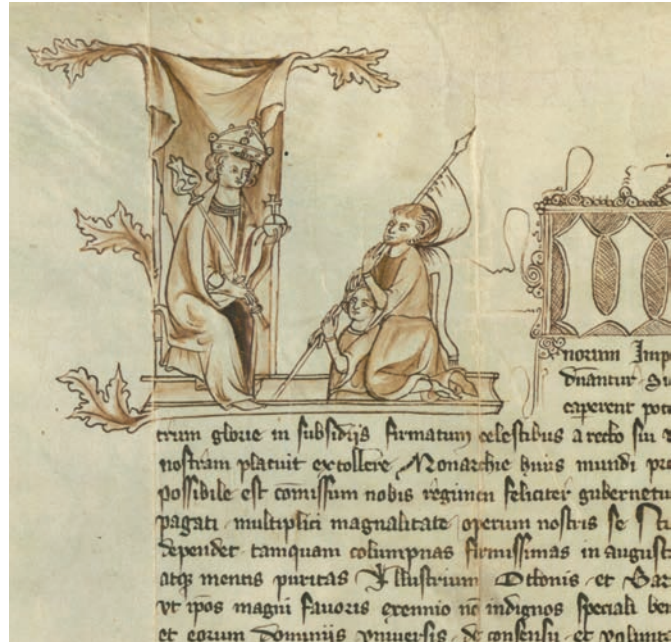 norum Imp
dinantur
caperent pot
trum glorie in subsidijs firmatum celestibus a recto sui
nostram placuit extollere Monarchie huius mundi pr
possibile est comissum nobis regimen feliciter gubernetu
pagati multiplici magnalitate operum nostris se
dependet tamquam columpnas firmissimas in august
atq mentis puritas Illustrium Ottonis et Bar
vt ipos magni fauoris exennio nc indignos speciali ben
et eorum Dominijs vniuersis de consensu et volun